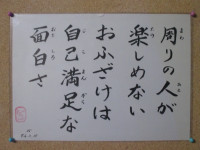 周りの人が
楽しめない
おふざけは
自己満足な
面白さ